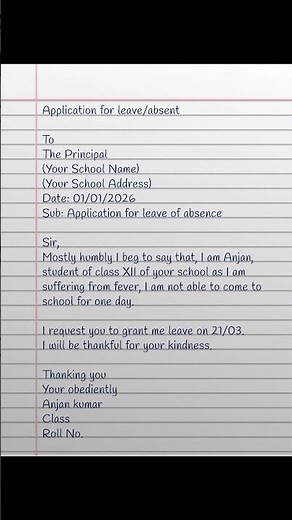 Application for leave/absent
To
The Principal
(Your School Name)
(Your School Address)
Date: 01/01/2026
Sub: Application for leave of absence
Sir,
Mostly humbly I beg to say that, I am Anjan,
student of class XII of your school as I am
suffering from fever, I am not able to come to
school for one day.
I request you to grant me leave on 21/03.
I will be thankful for your kindness.
Thanking you
Your obediently
Anjan kumar
Class
Roll No.